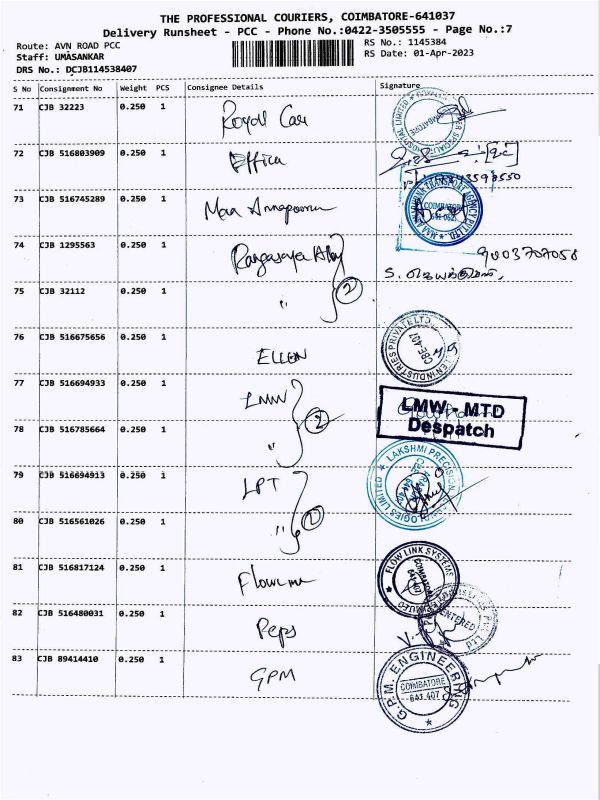 THE PROFESSIONAL COURIERS, COIMBATORE-641037
Delivery Runsheet - PCC - Phone No.:0422-3505555 - Page No.:7
Route: AVN ROAD PCC
RS No.: 1145384
Staff: UMASANKAR
RS Date: 01-Apr-2023
DRS No.: DCJB114538407
S No Consignment No Weight PCS Consignee Details Signature
71 CJB 32223 0.250 1 Royal Care
72 CJB 516803909 0.250 1 Office
73 CJB 516745289 0.250 1 Maa Annapoorna
MAA ANNAPOORNA TRANSPORT AGENCY PVT LTD
COIMBATORE
74 CJB 1295563 0.250 1
9003707058
75 CJB 32112 0.250 1 " 2
76 CJB 516675656 0.250 1 ELLEN
ELLEN INDUSTRIES PRIVATE LTD
CBE-407
77 CJB 516694933 0.250 1 LMW
LMW - MTD
Despatch
78 CJB 516785664 0.250 1 " 2
79 CJB 516694913 0.250 1 LPT
LAKSHMI PRECISION TECHNOLOGIES LIMITED
80 CJB 516561026 0.250 1 " 2
81 CJB 516817124 0.250 1
FLOW LINK SYSTEMS
COIMBATORE
641 407
82 CJB 516480031 0.250 1 Peps
ENTERED
83 CJB 89414410 0.250 1 GPM
G.P.M. ENGINEERING
COIMBATORE
641 407